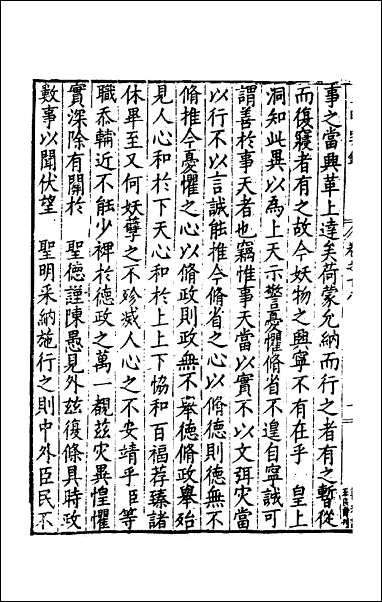 事之當興革上達矣荷蒙允納而行之者有之暫從
而復寢者有之故今妖物之興寧不有在乎　皇上
洞知此異以為上天示警憂懼脩省不遑自寧誠可
謂善於事天者也竊惟事天當以實不以文弭灾當
以行不以言誠能推今脩省之心以脩德則德無不
脩推今憂懼之心以脩政則政無不舉德脩政舉始
見人心和於下天心和於上上下恊和百福荐臻諸
休畢至又何妖孽之不殄滅人心之不安靖乎臣等
職忝輔近不能少裨於德政之萬一覩兹灾異惶懼
實深除有開於　聖德謹陳愚見外兹復條具時政
數事以聞伏望　聖明采納施行之則中外臣民不